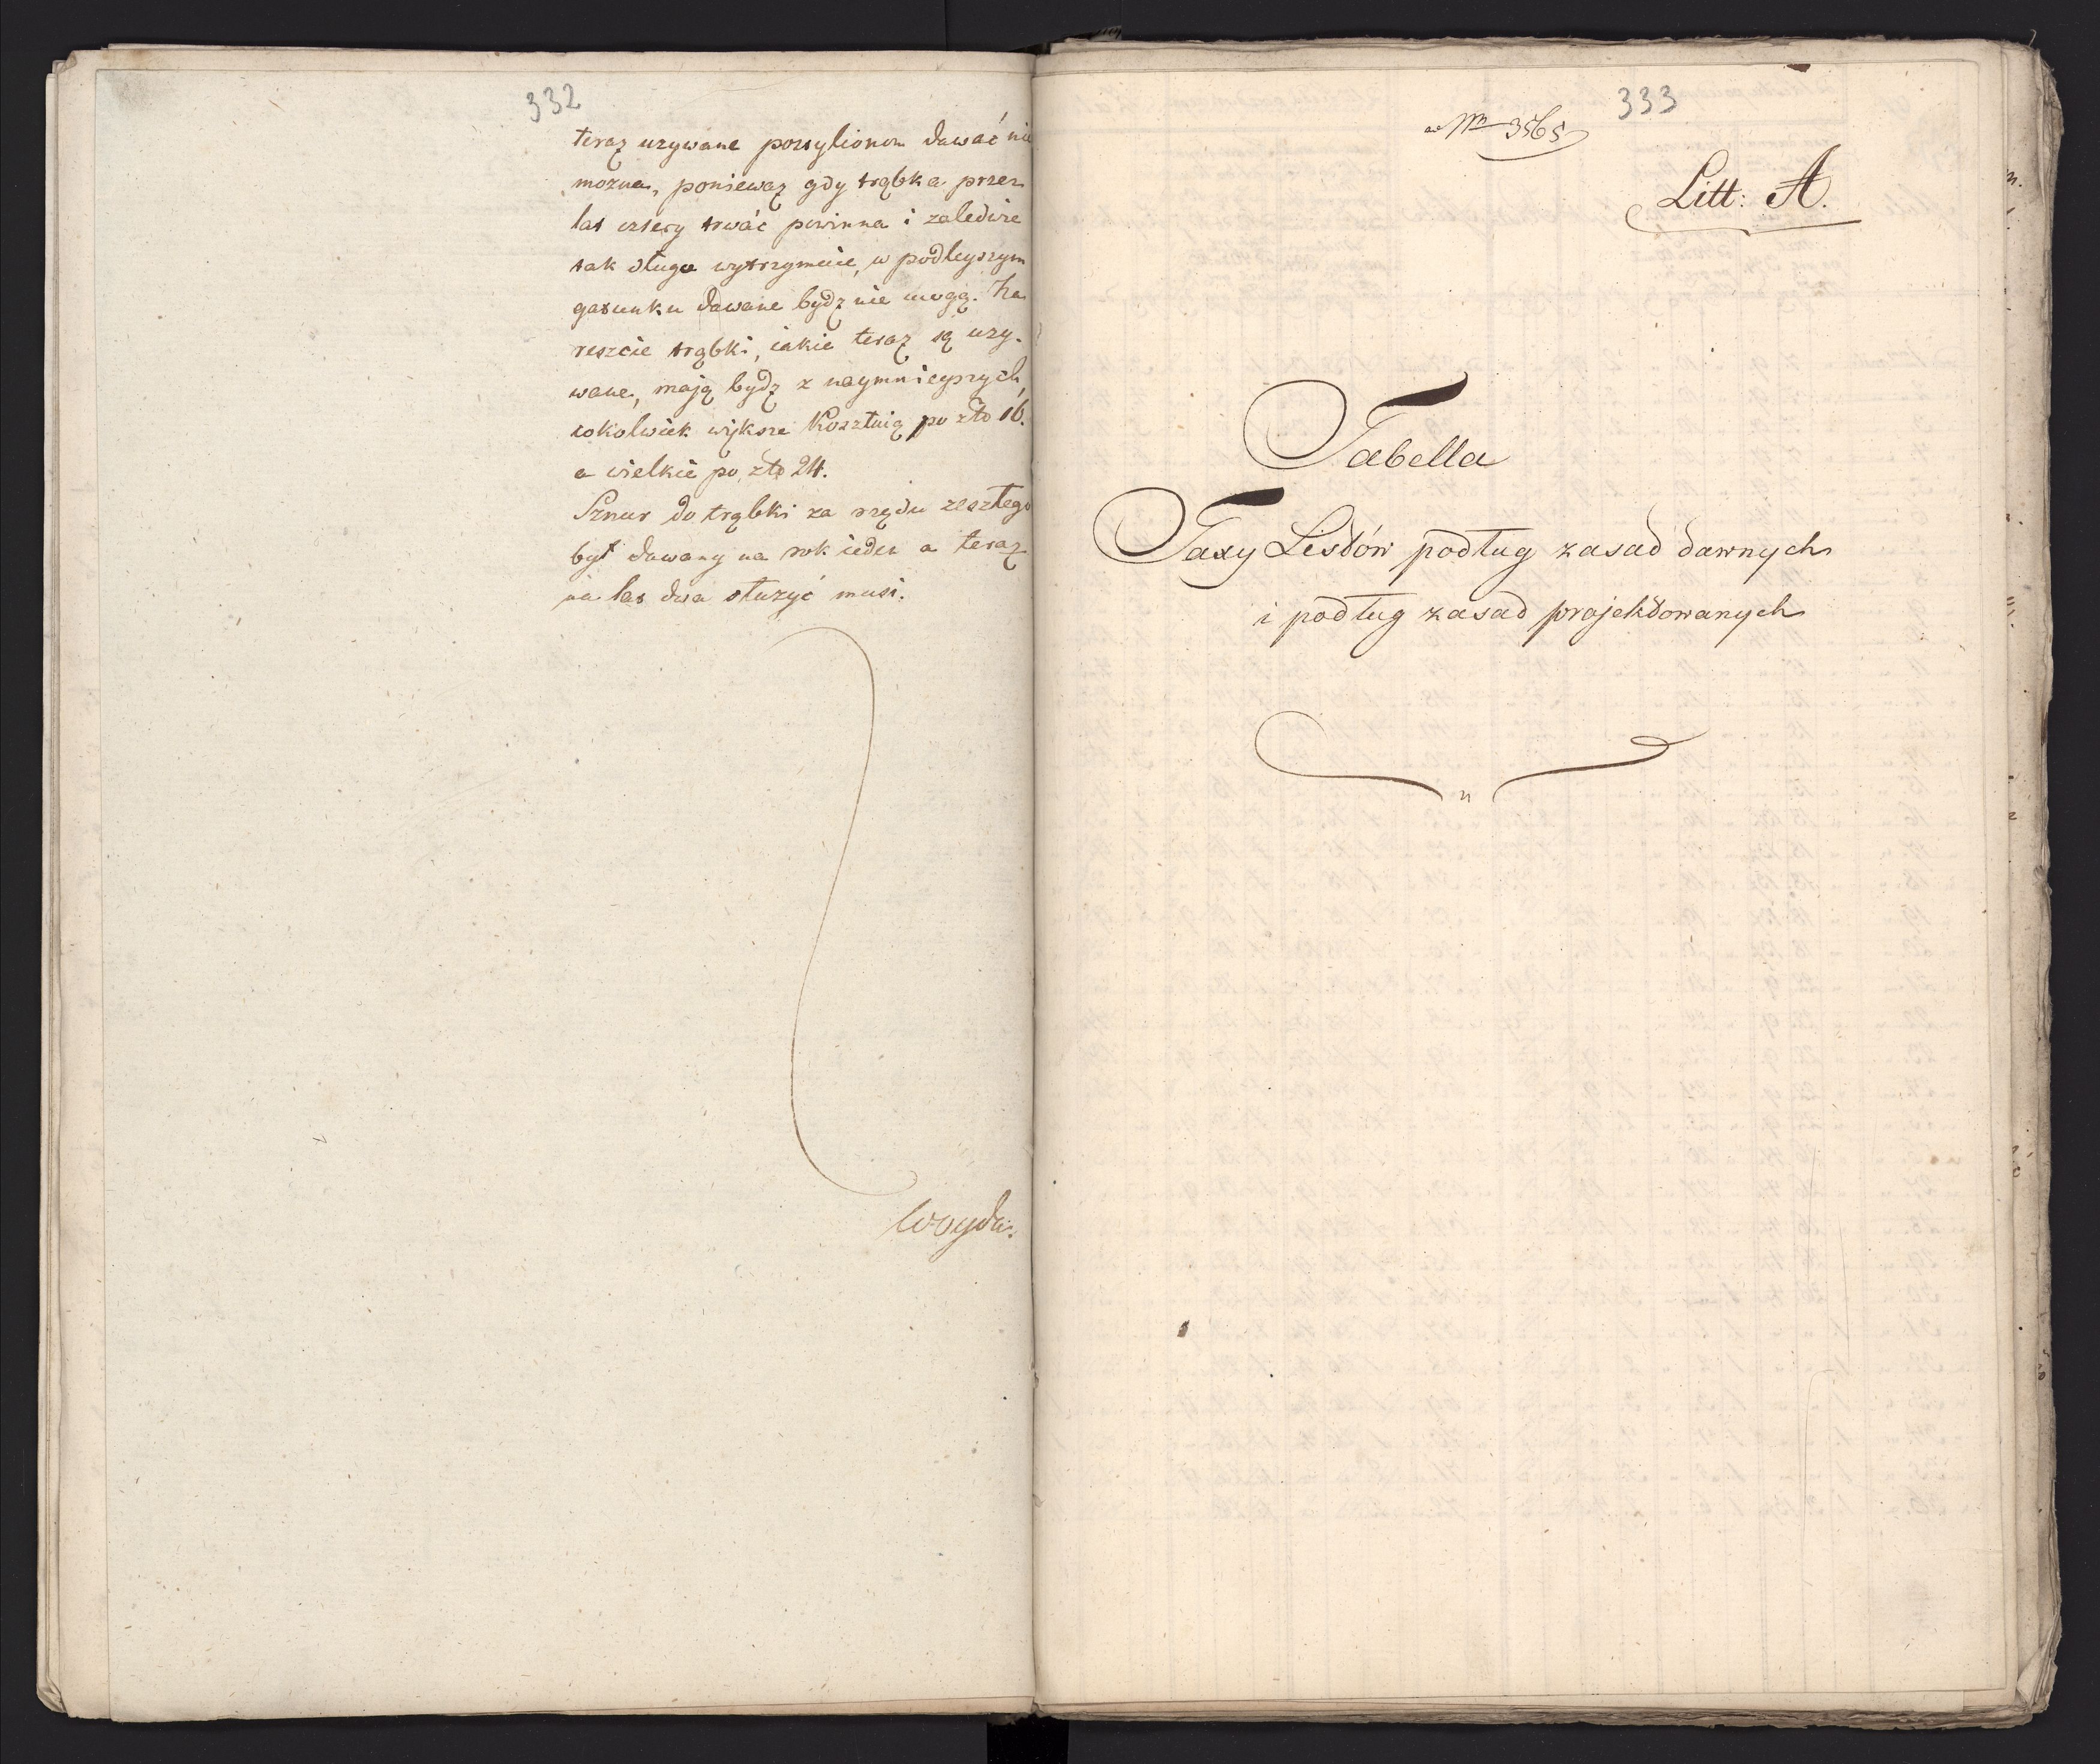 332
teraz uzywane posstylionom dawać nie
mozna, poniewaz gdy trąbka przez
lat cztery trwać powinna i zaledwie
tak długo wytrzymuie, w podleyszym
gatunku dawane bydz nie mogą. Za
reszcie trąbki, iakie teraz są uzy-
wane, maią bydz z naymnieyszych,
cokolwiek większe Kosztuią po zło 16.
a wielkie po zło 24.
Sznur do trąbki za rządu zeszłego
był dawany na rok ieden a teraz
na lat dwa służyć musi.
Woyda.
333
ad Nm 3565
Litt: A.
Tabella
Taxy Listów podług zasad dawnych
i podług zasad projektowanych